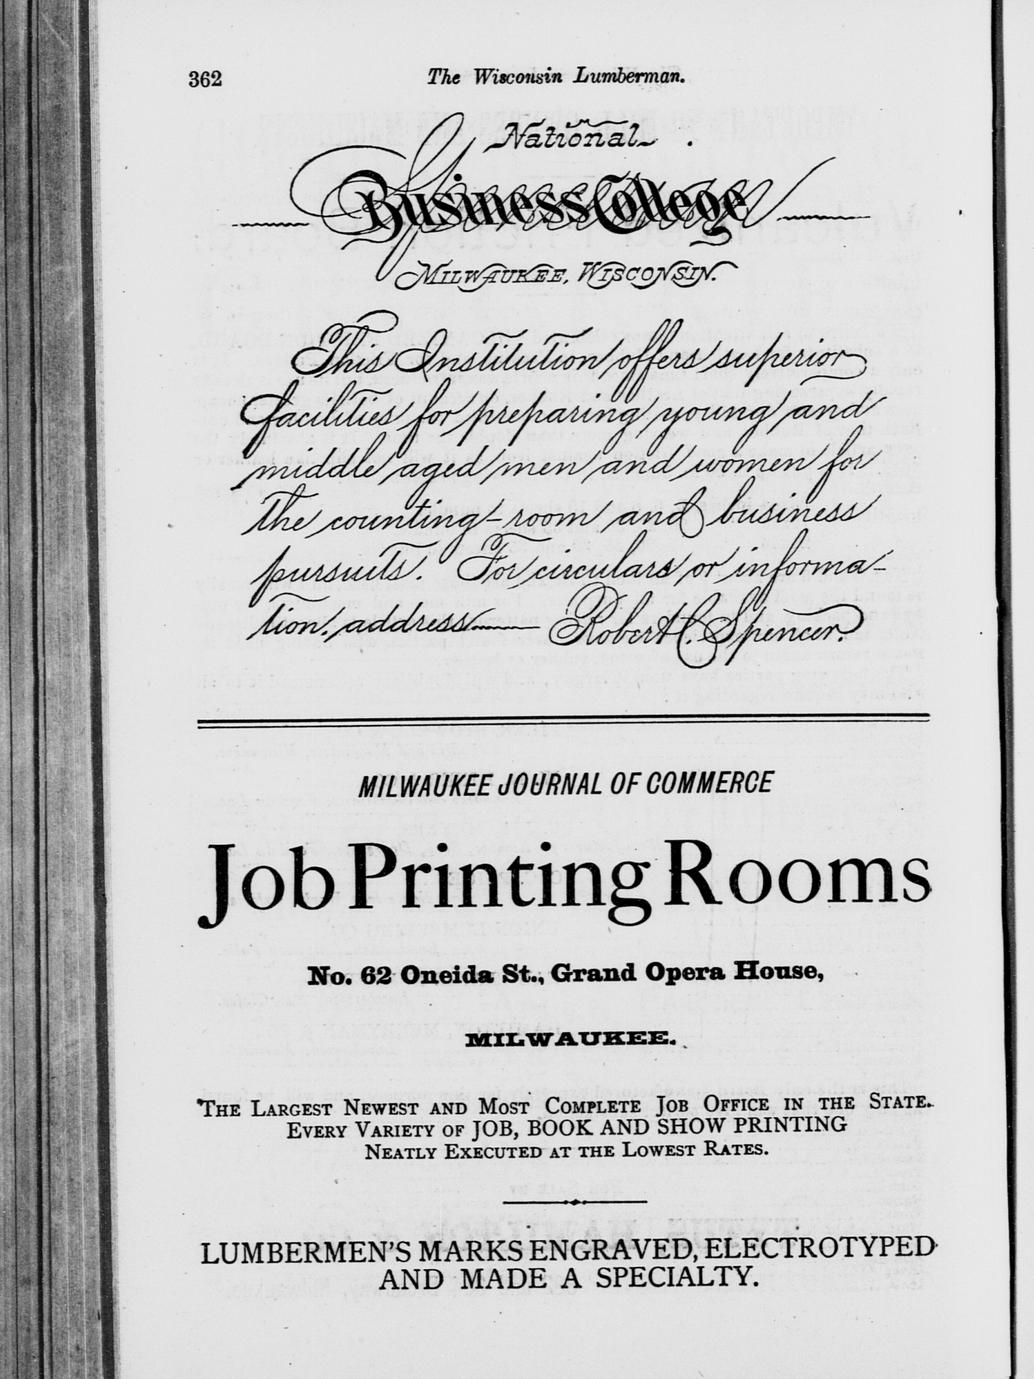 362
The Wisconsin Lumberman.
National
Business College
Milwaukee, Wisconsin.
This Institution offers superior
facilities for preparing young and
middle aged men and women for
the counting-room and business
pursuits. For circulars or informa-
tion, address—— Robert C. Spencer.
MILWAUKEE JOURNAL OF COMMERCE
Job Printing Rooms
No. 62 Oneida St., Grand Opera House,
MILWAUKEE.
The Largest Newest and Most Complete Job Office in the State.
Every Variety of JOB, BOOK AND SHOW PRINTING
Neatly Executed at the Lowest Rates.
LUMBERMEN'S MARKS ENGRAVED, ELECTROTYPED
AND MADE A SPECIALTY.